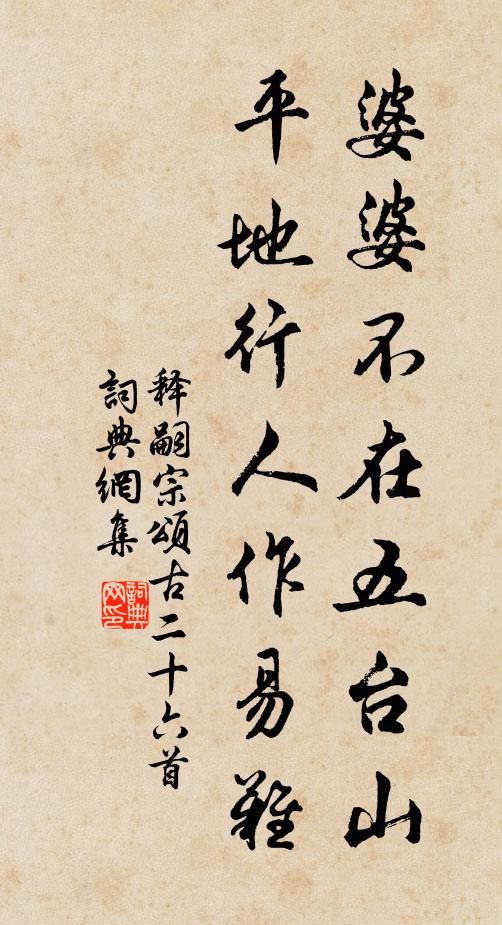 婆婆不在五台山
平地行人作易難
释嗣宗頌古二十六首
詞典網集
詞典网印